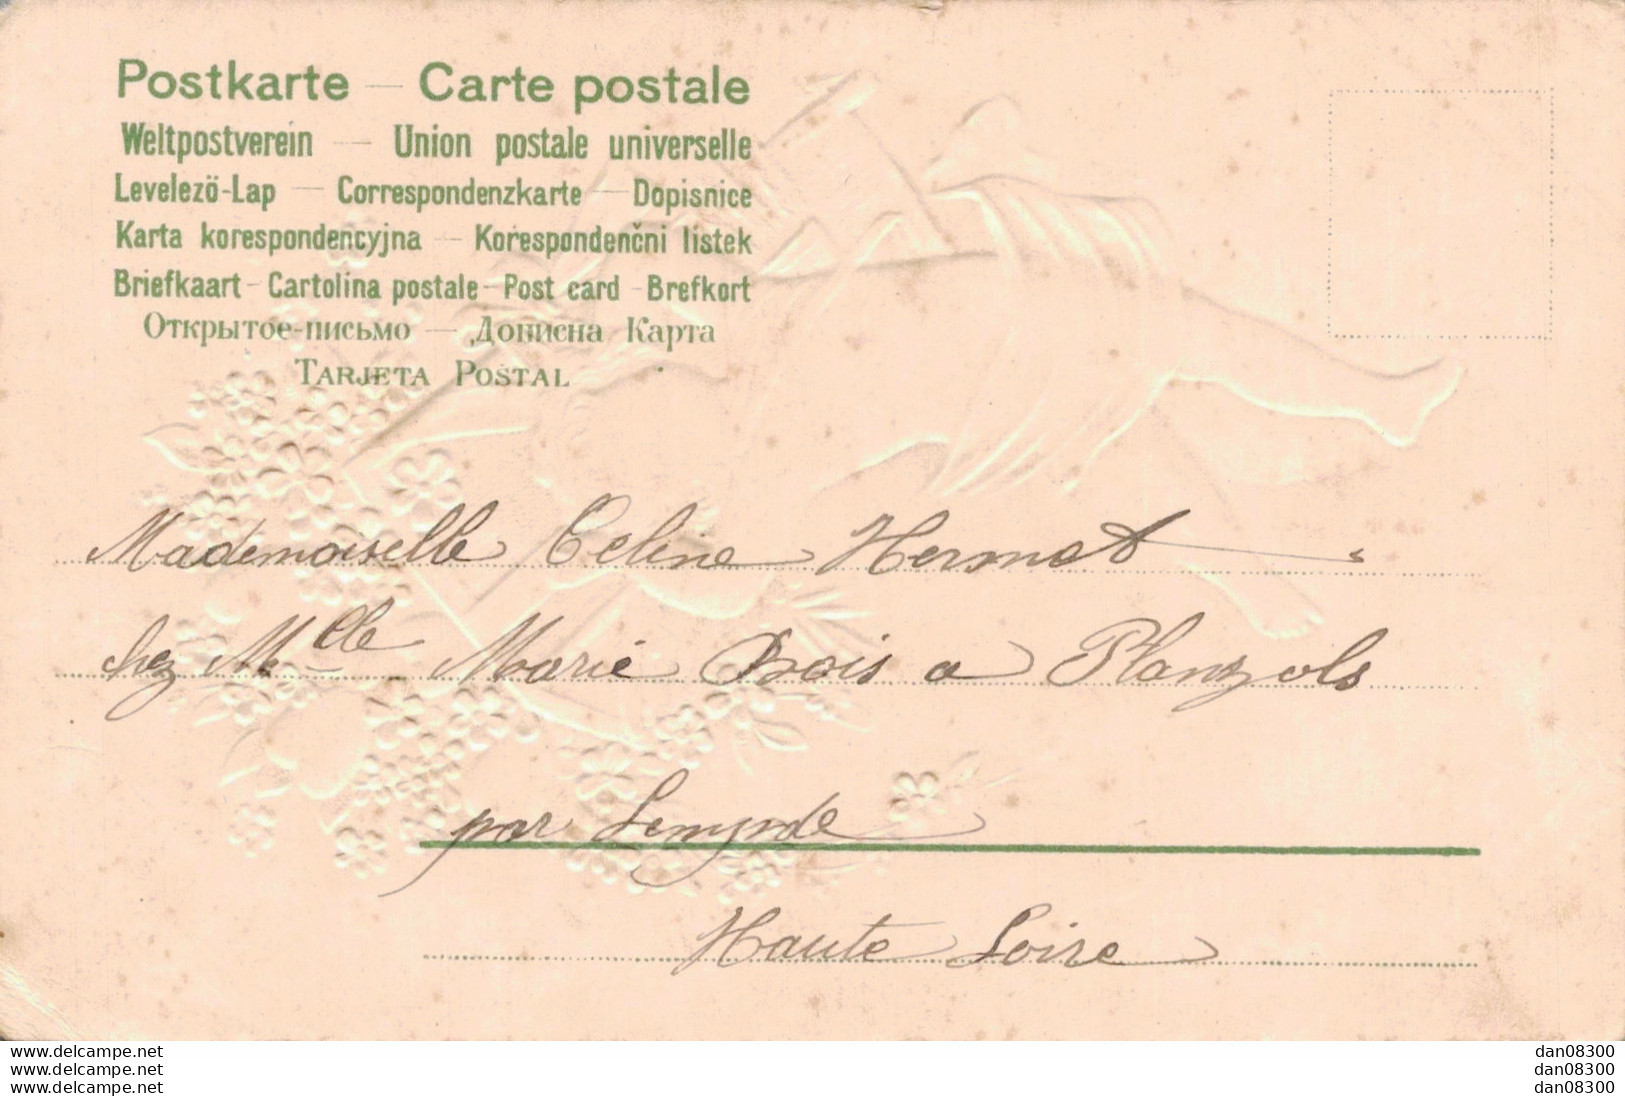 Postkarte — Carte postale
Weltpostverein — Union postale universelle
Levelező-Lap — Correspondenzkarte — Dopisnice
Karta korespondencyjna — Korespondenčni listek
Briefkaart - Cartolina postale - Post card - Brefkort
Открытое-письмо — Дописна Карта
TARJETA POSTAL
Mademoiselle Celine Hermet
chez Mlle Marie Bois a Planzols
par Lempde
Haute Loire
www.delcampe.net dan08300
www.delcampe.net dan08300
www.delcampe.net dan08300